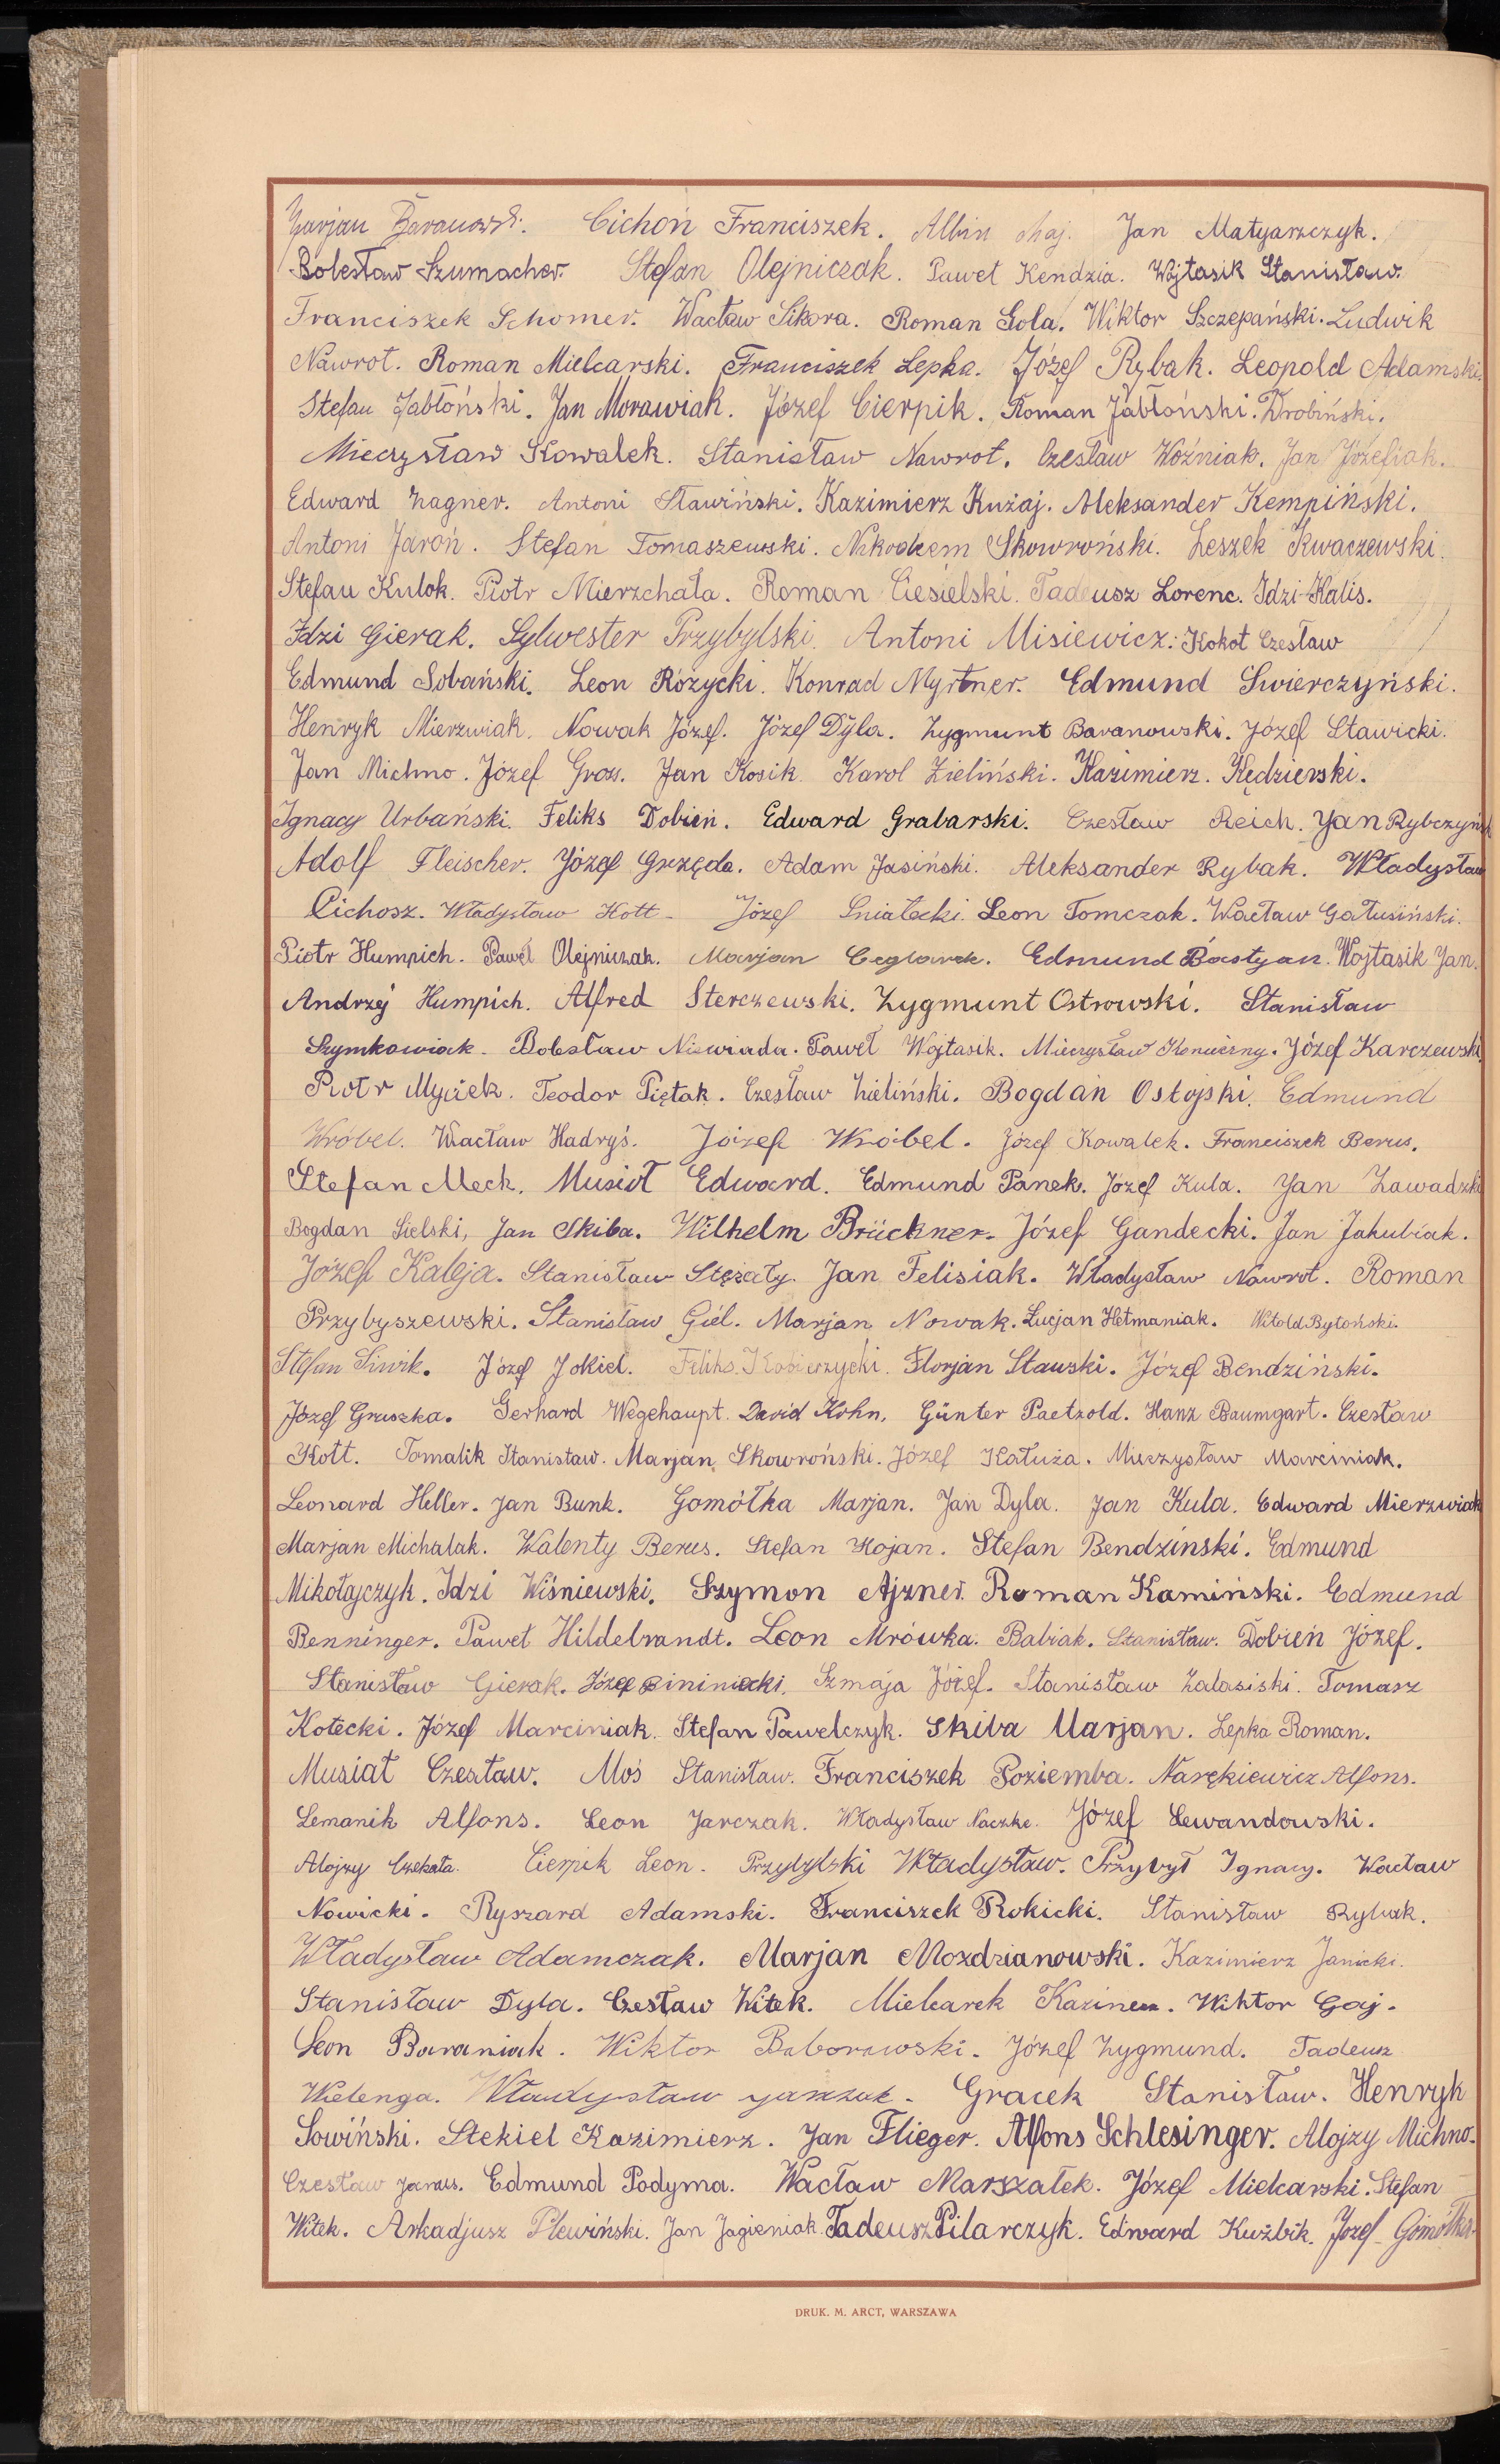 Marjan Baranowski. Cichoń Franciszek. Albin Maj. Jan Matyarszczyk.
Bolesław Szumacher. Stefan Olejniczak. Paweł Kendzia. Wojtasik Stanisław.
Franciszek Schomer. Wacław Sikora. Roman Gola. Wiktor Szczepański. Ludwik
Nawrot. Roman Mielcarski. Franciszek Lepka. Józef Rybak. Leopold Adamski.
Stefan Jabłoński. Jan Morawiak. Józef Cierpik. Roman Jabłoński. Drobiński.
Mieczysław Kowalek. Stanisław Nawrot. Czesław Woźniak. Jan Józefiak.
Edward Zagner. Antoni Sławiński. Kazimierz Kużaj. Aleksander Kempiński.
Antoni Jaroń. Stefan Tomaszewski. Nikodem Skowroński. Leszek Kwaczewski.
Stefan Kulok. Piotr Mierzchała. Roman Ciesielski. Tadeusz Lorenc. Idzi Kalis.
Idzi Gierak. Sylwester Przybylski. Antoni Misiewicz. Kokot Czesław
Edmund Sobański. Leon Różycki. Konrad Myrtner. Edmund Świerczyński.
Henryk Mierzwiak. Nowak Józef. Józef Dyla. Zygmunt Baranowski. Józef Stawicki.
Jan Michno. Józef Gross. Jan Kosik. Karol Zieliński. Kazimierz. Kędzierski.
Ignacy Urbański. Feliks Dobień. Edward Grabarski. Czesław Reich. Jan Rybczyński
Adolf Fleischer. Józef Grzęda. Adam Jasiński. Aleksander Rybak. Władysław
Cichosz. Władysław Kott. Józef Śniatecki. Leon Tomczak. Wacław Gałusiński.
Piotr Humpich. Paweł Olejniczak. Marjan Ceglarek. Edmund Bastyan. Wojtasik Jan.
Andrzej Humpich. Alfred Sterczewski. Zygmunt Ostrowski. Stanisław
Szymkowiak. Bolesław Niewiada. Paweł Wojtasik. Mieczysław Konieczny. Józef Karczewski
Piotr Myciek. Teodor Piętak. Czesław Zieliński. Bogdan Ostojski. Edmund
Wróbel. Wacław Hadryś. Józef Wróbel. Józef Kowalek. Franciszek Berus.
Stefan Meck. Musioł Edward. Edmund Panek. Józef Kula. Jan Zawadzki
Bogdan Sielski, Jan Skiba. Wilhelm Brückner. Józef Gandecki. Jan Jakubiak.
Józef Kaleja. Stanisław Stężały. Jan Felisiak. Władysław Nawrot. Roman
Przybyszewski. Stanisław Giel. Marjan Nowak. Lucjan Hetmaniak. Witold Bytoński.
Stefan Siwik. Józef Jokiel. Feliks Kobierzycki. Florjan Stawski. Józef Bendziński.
Józef Gruszka. Gerhard Wegehaupt. David Kohn. Günter Paetzold. Hanz Baumgart. Czesław
Kott. Tomalik Stanisław. Marjan Skowroński. Józef Kałuża. Mieczysław Marciniak.
Leonard Heller. Jan Bunk. Gomółka Marjan. Jan Dyla. Jan Kula. Edward Mierzwiak
Marjan Michalak. Walenty Berus. Stefan Kojan. Stefan Bendzinski. Edmund
Mikołajczyk. Idzi Wiśniewski. Szymon Ajzner. Roman Kamiński. Edmund
Benninger. Paweł Hildebrandt. Leon Mrówka. Babiak. Stanisław. Dobień Józef.
Stanisław Gierak. Józef Szmaja Józef. Stanisław Zalasiski. Tomasz
Kotecki. Józef Marciniak. Stefan Pawelczyk. Skiba Marjan. Lepka Roman.
Musiał Czesław. Moś Stanisław. Franciszek Poziemba. Narękiewicz Alfons.
Lemanik Alfons. Leon Jarczak. Władysław Naczke. Józef Lewandowski.
Alojzy Czekała. Cierpik Leon. Przybylski Władysław. Przybył Ignacy. Wacław
Nowicki. Ryszard Adamski. Franciszek Rokicki. Stanisław Rybak.
Władysław Adamczak. Marjan Mozdzianowski. Kazimierz Janicki.
Stanisław Dyla. Czesław Witek. Mielcarek Kazimierz. Wiktor Gaj.
Leon Baraniak. Wiktor Baborowski. Józef Zygmund. Tadeusz
Wielenga. Władysław Jarczak. Gracek Stanisław. Henryk
Sowiński. Stekiel Kazimierz. Jan Flieger. Alfons Schlesinger. Alojzy Michno.
Czesław Janus. Edmund Podyma. Wacław Marszałek. Józef Mielcarski. Stefan
Witek. Arkadjusz Plewiński. Jan Jagieniak. Tadeusz Pilarczyk. Edward Kuźbik. Józef Gomółka.
DRUK. M. ARCT, WARSZAWA